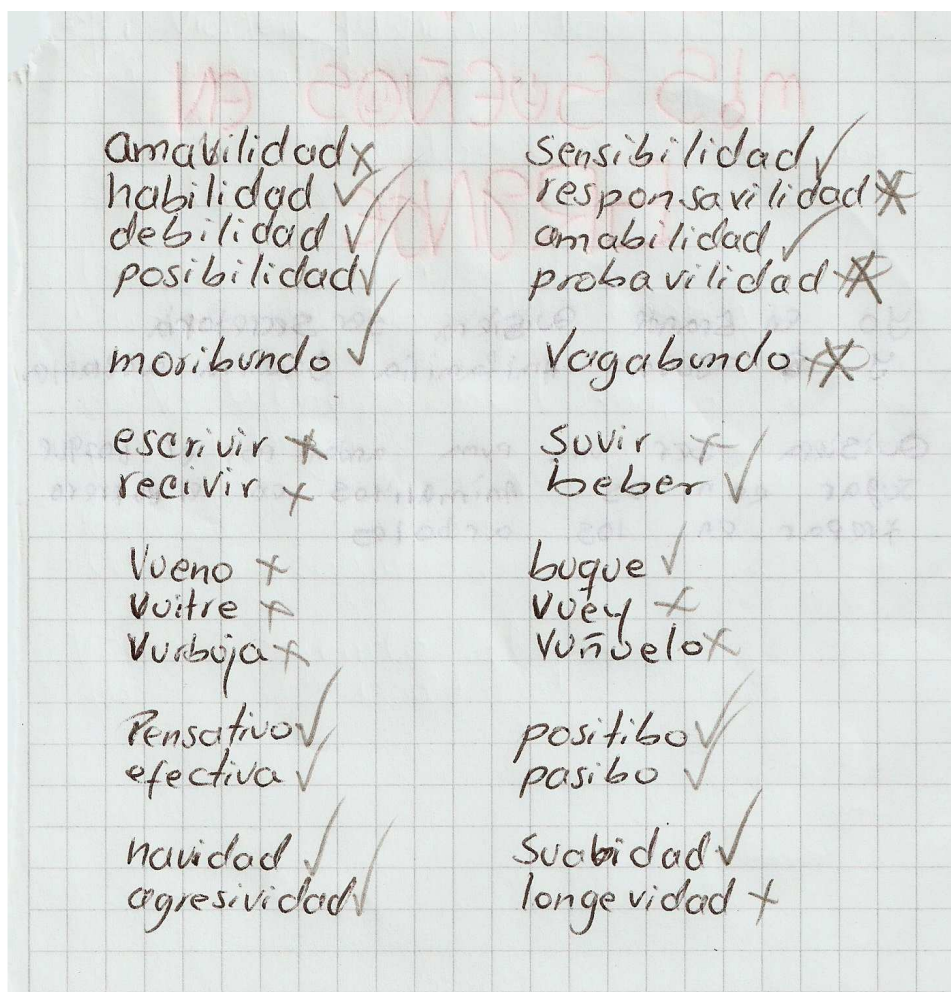 amavilidad x
habilidad ✓
debilidad ✓
posibilidad ✓
moribundo ✓
escrivir x
recivir x
Vueno x
Vuitre x
Vurbuja x
Pensativo ✓
efectiva ✓
navidad ✓
agresividad ✓
Sensibilidad ✓
responsavilidad x
amabilidad ✓
probavilidad x
Vagabundo x
Suvir x
beber ✓
buque ✓
Vuey x
Vuñuelo x
positibo ✓
pasibo ✓
Suabidad ✓
longevidad x